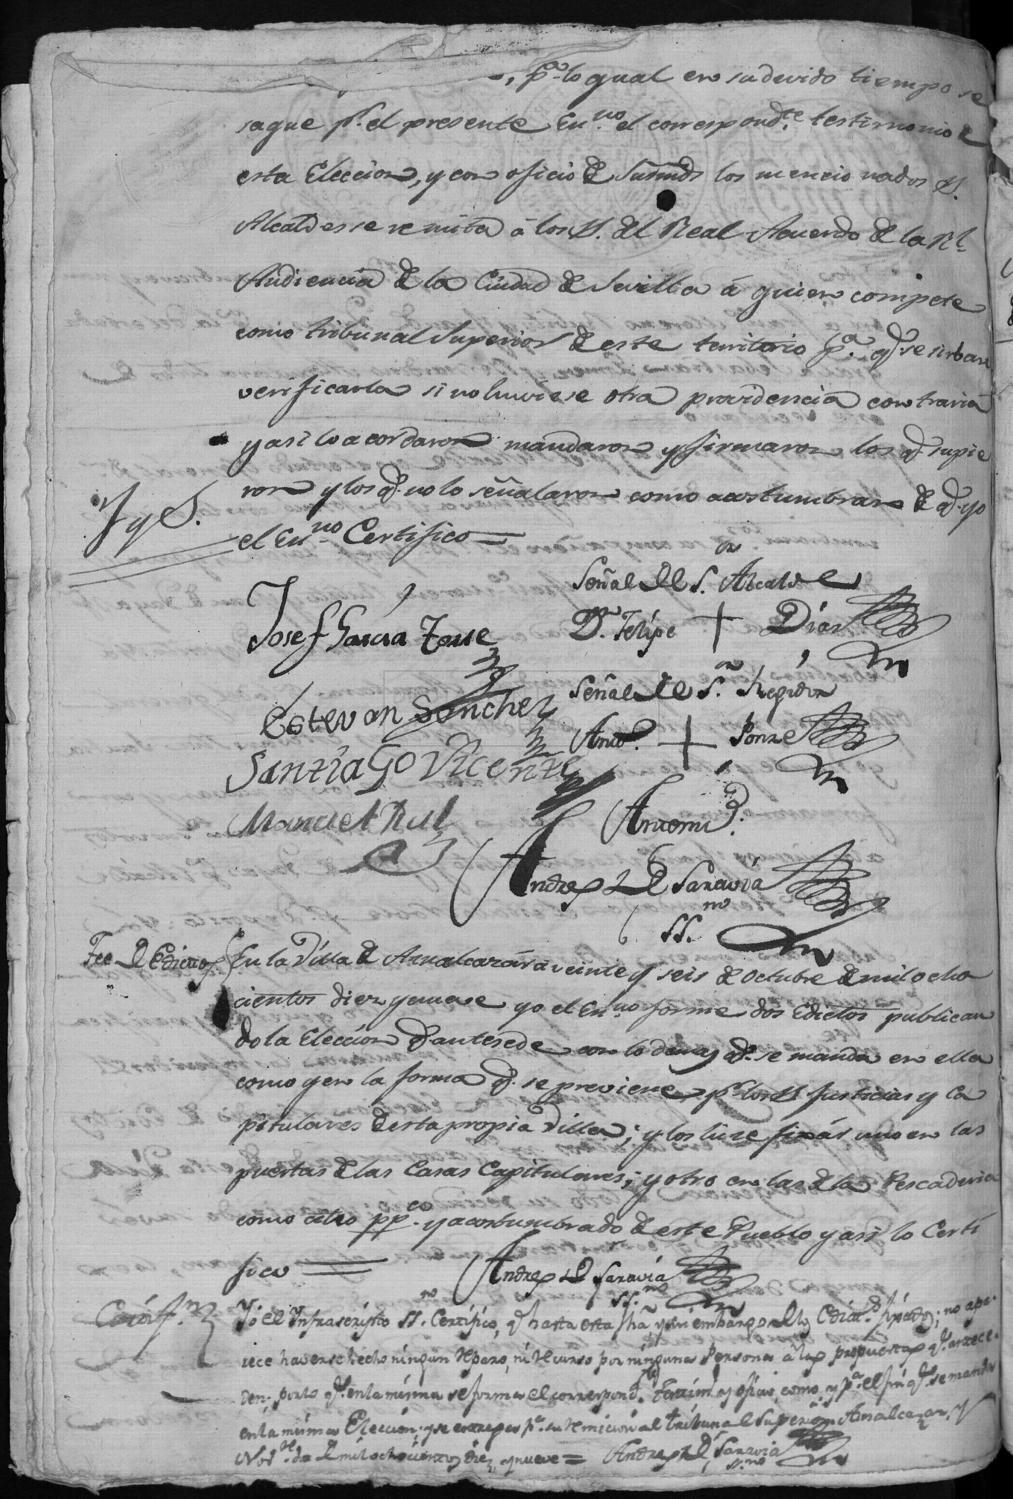 , pª lo qual en su devido tiempo se
saque pr. el presente Essno. el correspondte. testimonio de
esta Eleccion, y con oficio de Sumds los mencionados SS.
Alcaldes se remita á los SS. del Real Acuerdo de la Rl.
Audiencia de la Ciudad de Sevilla á quien compete
como tribunal Superior de este territorio pª. qe. se sirban
verificarla si no huviese otra providencia contraria
y asi lo acordaron mandaron y firmaron los qe. supie
ron y los qe. no lo señalaron como acostumbran de qe. yo
el Essno. Certifico =
Señal del Sor. Alcalde
Josef Garcia Torre Dn. Felipe + Dias
Señal del Sor. Regidor
Estevan Sanchez Anto. + Ponze
Santiago Vicente
Manuel Rul Ante mi
Andres de Saravia
SSno.
Fee de Edictos En la Villa de Aznalcazar á veinte y seis de Octubre de mil ocho
cientos diez y nueve yo el Essno forme dos Edictos publican
do la Eleccion qe antesede con lo demas qe. se manda en ella
como y en la forma qe. se previene pr. los SS Justicias y Ca
pitulares de esta propia Villa; y los hize fixar uno en las
puertas de las Casas Capitulares; y otro en las de la Pescaderia
como citio ppco. y acostumbrado de este Pueblo y asi lo Certi
fico = Andres de Saravia
SSno.
Yo el Infrascripto SSno. Certifico, qe hasta esta fha y sin embargo de los Edictos fixados; no apa-
rece haverse hecho ningun reparo, ni recurso por ninguna Persona á las propuestas qe. antece-
den; por lo qe. en la misma se forma el correspondte. Testimo y oficio, como y pª. el fin qe. se manda
en la misma Eleccion; y se entrega pª. su remicion al tribunal Superior Aznalcazar, y
Novre. de mil ochocientos diez y nueve = Andres de Saravia
SSno.